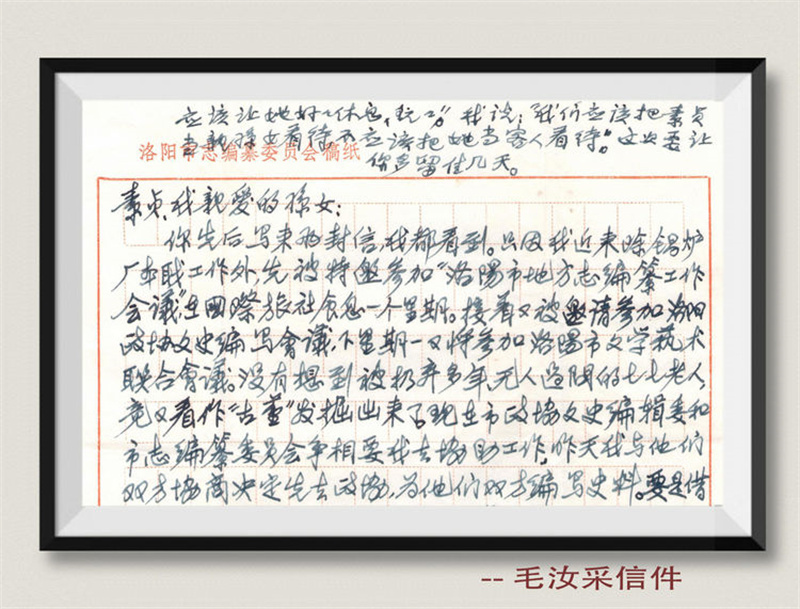 应该让她好好休息,玩玩”。我说:“我们应该把素贞
当亲孙女看待不应该把她当客人看待。”这次要让
洛阳市志编纂委员会稿纸
你多留住几天。
素贞,我亲爱的孫女:
你先后写来两封信,我都看到。只因我近来除锅炉
厂本职工作外,先被特邀参加“洛阳市地方志编纂工作
会议”,在國際旅社食息一个星期。接着又被邀请参加洛阳
政协文史编写會議,下星期一又将参加洛陽市文学艺术
联合會議。没有想到被扔弃多年,无人过问的七七老人,
竟又看作“古董”发掘出来了。现在市政協文史编辑委和
市志编纂委员会争相要我去協助工作,昨天我与他们
双方協商决定先去政协,为他们双方编写史料。要是借
-- 毛汝采信件